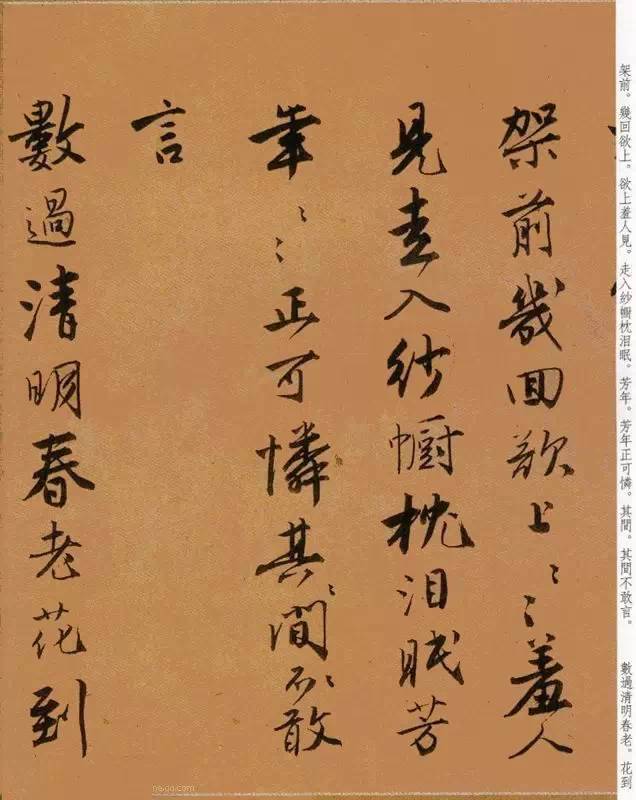 架前。幾回欲上。欲上羞人見。走入紗幮枕泪眠。芳年。芳年正可憐。其間。其間不敢言。　　數過清明春老。花到
架前幾回欲上〻〻羞人
見走入紗幮枕泪眠芳
年〻〻正可憐其〻間〻不敢
言
數過清明春老花到